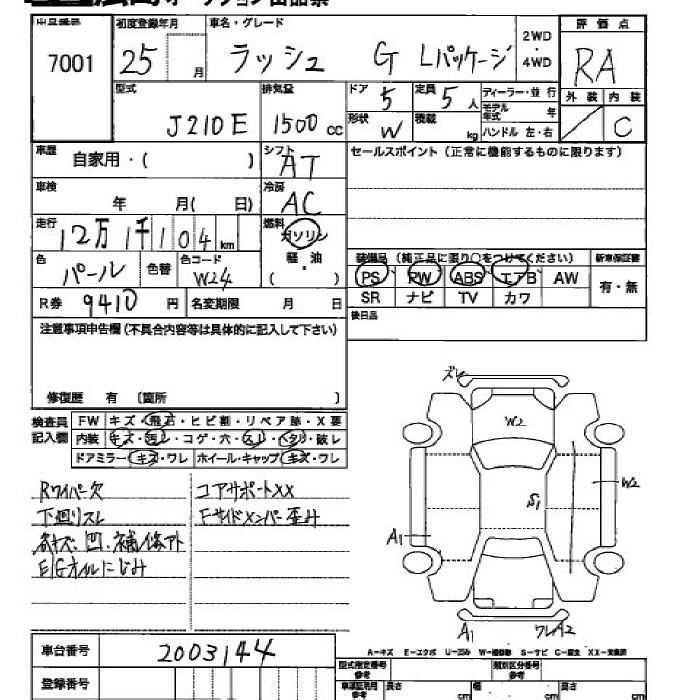 出品番号 初度登録年月 車名・グレード 2WD・4WD 評価点
7001 25 月 ラッシュ G Lパッケージ RA
型式 排気量 ドア 5 定員 5人 ディーラー・並行 外装 内装
J210E 1500cc 形状 W 積載 kg モデル年式 年 ハンドル 左・右 C
車歴 自家用・( ) シフト AT セールスポイント (正常に機能するものに限ります)
車検 年 月( 日) 冷房 AC
走行 12万1千104km 燃料 ガソリン
色 パール 色替 色コード W24 軽・油 ( ) 装備品 (純正品に限り○をつけてください) 新車保証書
PS PW ABS エアB AW 有・無
R券 9410円 名変期限 月 日 SR ナビ TV カワ
注意事項申告欄(不具合内容等は具体的に記入して下さい) 後日品
修復歴 有 〔箇所 〕
検査員記入欄 FW キズ・飛石・ヒビ割・リペア跡・X要
内装 キズ・汚レ・コゲ・穴・スレ・ヘタリ・破レ
ドアミラー キズ・ワレ ホイール・キャップ キズ・ワレ
ズレ
W2
W2
S1
A1
A1 ワレA2
Rワイパー欠 コアサポートXX
下廻リスレ Fサイドメンバー歪み
各キズ、凹、補修アト
E/Gオイルにじみ
A−キズ E−エクボ U−凹み W−補修跡 S−サビ C−腐食 XX−交換済
車台番号 2003144
登録番号
型式指定番号 参考 類別区分番号 参考
車項証明用 参考 長さ cm 幅 cm 高さ cm